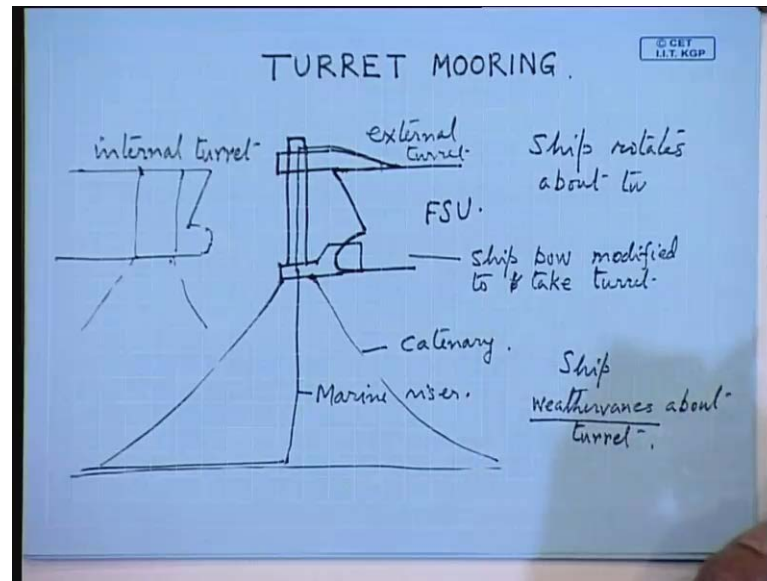 © CET
I.I.T. KGP
TURRET MOORING.
internal turret
external
turret
Ship rotates
about tu
FSU.
Ship bow modified
to take turret
Catenary.
Marine riser.
Ship
weathervanes about
turret.